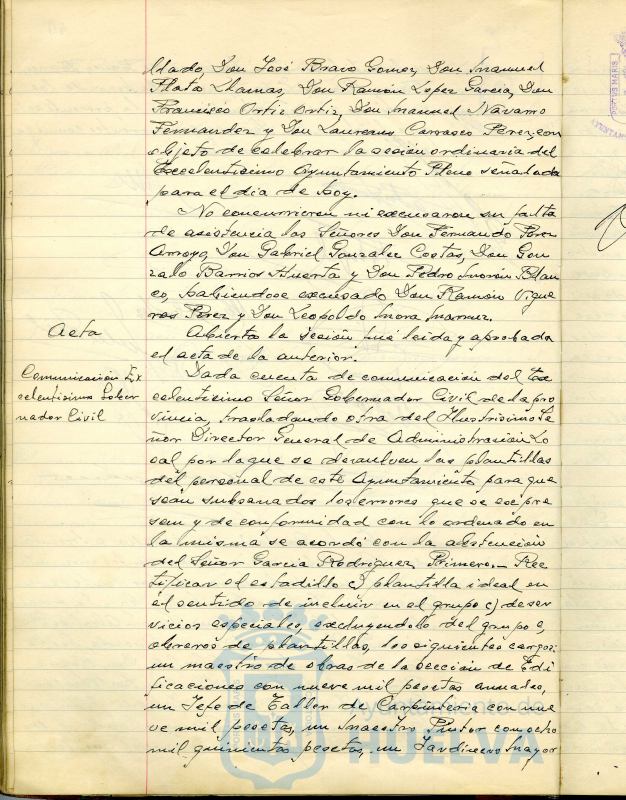 llado, Don José Bravo Gomez, Don Manuel
Plata Llamas, Don Ramón Lopez Garcia, Don
Francisco Ortiz Ortiz, Don Manuel Navarro
Fernandez y Don Laureano Carrasco Perez, con
objeto de celebrar la sesión ordinaria del
Excelentisimo Ayuntamiento Pleno señalada
para el dia de hoy.
No concurrieron ni excusaron su falta
de asistencia los Señores Don Fernando Perez
Arroyo, Don Gabriel Gonzalez Costas, Don Gon
zalo Barrios Huerta y Don Pedro Morón Blan
co, habiendose excusado Don Ramón Vigue
ras Perez y Don Leopoldo Mora
Acta
Abierta la sesión fué leida y aprobada
el acta de la anterior.
Comunicación Ex
celentisimo Gober
nador Civil
Dada cuenta de comunicación del Ex
celentisimo Señor Gobernador Civil de la pro
vincia, trasladando otra del Ilustrisimo Se
ñor Director General de Administración Lo
cal por la que se devuelven las plantillas
del personal de este Ayuntamiento para que
sean subsanados los errores que se expre
sem y de conformidad con lo ordenado en
la misma se acordó con la abstención
del Señor Garcia Rodriguez, Primero.- Rec
tificar el estadillo c) plantilla ideal en
el sentido de incluir en el grupo c) de ser
vicios especiales, excluyendolo del grupo e,
obreros de plantillas, los siguientes cargos:
un maestro de obras de la sección de Edi
ficaciones con nueve mil pesetas anuales,
un Jefe de Taller de Carpinteria con nue
ve mil pesetas, un Maestro Pintor con ocho
mil quinientas pesetas, un Jardinero Mayor
Ayuntamiento de
HUELVA
PORTUS MARIS
AYUNTAM